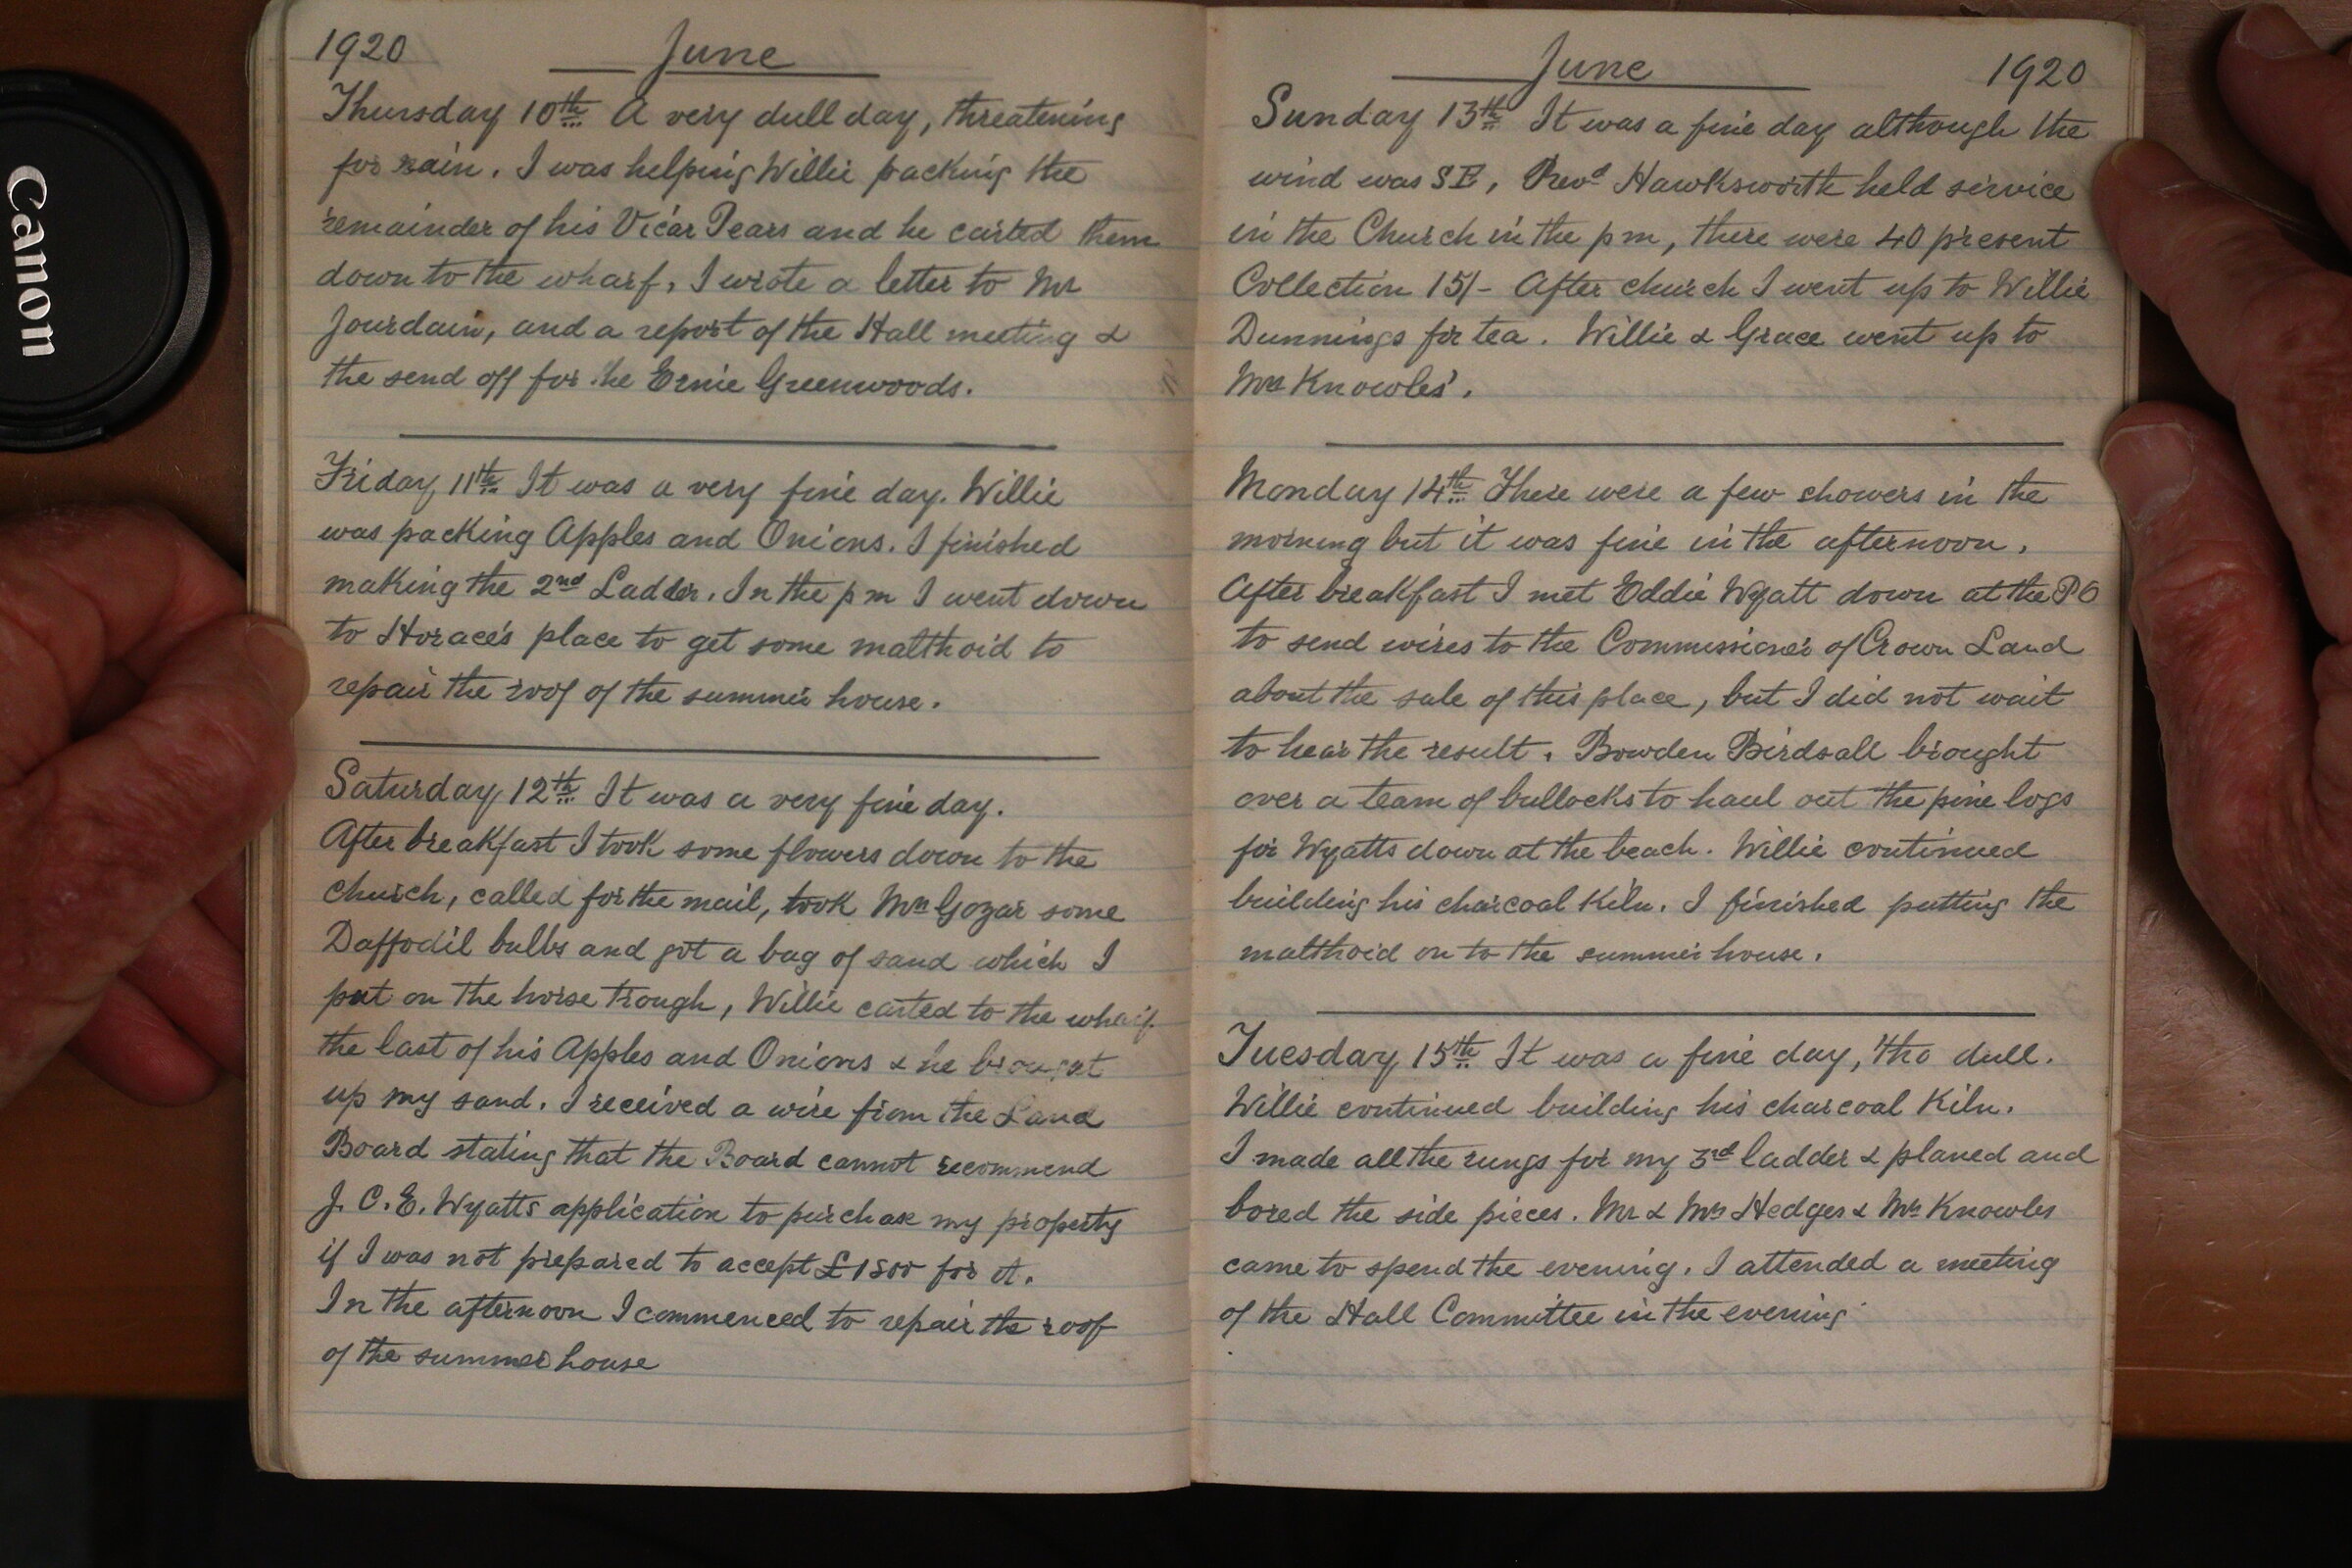 Canon
1920 June
Thursday 10th A very dull day, threatening
for rain. I was helping Willie packing the
remainder of his Vicar Pears and he carted them
down to the wharf. I wrote a letter to Mr
Jourdain, and a report of the Hall meeting &
the send off for the Ernie Greenwoods.
Friday 11th It was a very fine day. Willie
was packing Apples and Onions. I finished
making the 2nd Ladder. In the pm I went down
to Horace's place to get some malthoid to
repair the roof of the summer house.
Saturday 12th It was a very fine day.
After breakfast I took some flowers down to the
church, called for the mail, took Mrs Gozar some
Daffodil bulbs and got a bag of sand which I
put on the horse trough, Willie carted to the wharf
the last of his Apples and Onions & he brought
up my sand. I received a wire from the Land
Board stating that the Board cannot recommend
J. C. E. Wyatts application to purchase my property
if I was not prepared to accept £1500 for it.
In the afternoon I commenced to repair the roof
of the summer house
June 1920
Sunday 13th It was a fine day although the
wind was SE, Revd Hawksworth held service
in the Church in the pm, there were 40 present
Collection 15/- After church I went up to Willie
Dunnings for tea. Willie & Grace went up to
Mrs Knowles'.
Monday 14th There were a few showers in the
morning but it was fine in the afternoon.
After breakfast I met Eddie Wyatt down at the PO
to send wires to the Commissioner of Crown Land
about the sale of this place, but I did not wait
to hear the result. Bowden Birdsall brought
over a team of bullocks to haul out the pine logs
for Wyatts down at the beach. Willie continued
building his charcoal Kiln. I finished putting the
malthoid on to the summer house.
Tuesday 15th It was a fine day, 'tho dull.
Willie continued building his charcoal Kiln.
I made all the rungs for my 3rd ladder & planed and
bored the side pieces. Mr & Mrs Hedges & Mrs Knowles
came to spend the evening. I attended a meeting
of the Hall Committee in the evening